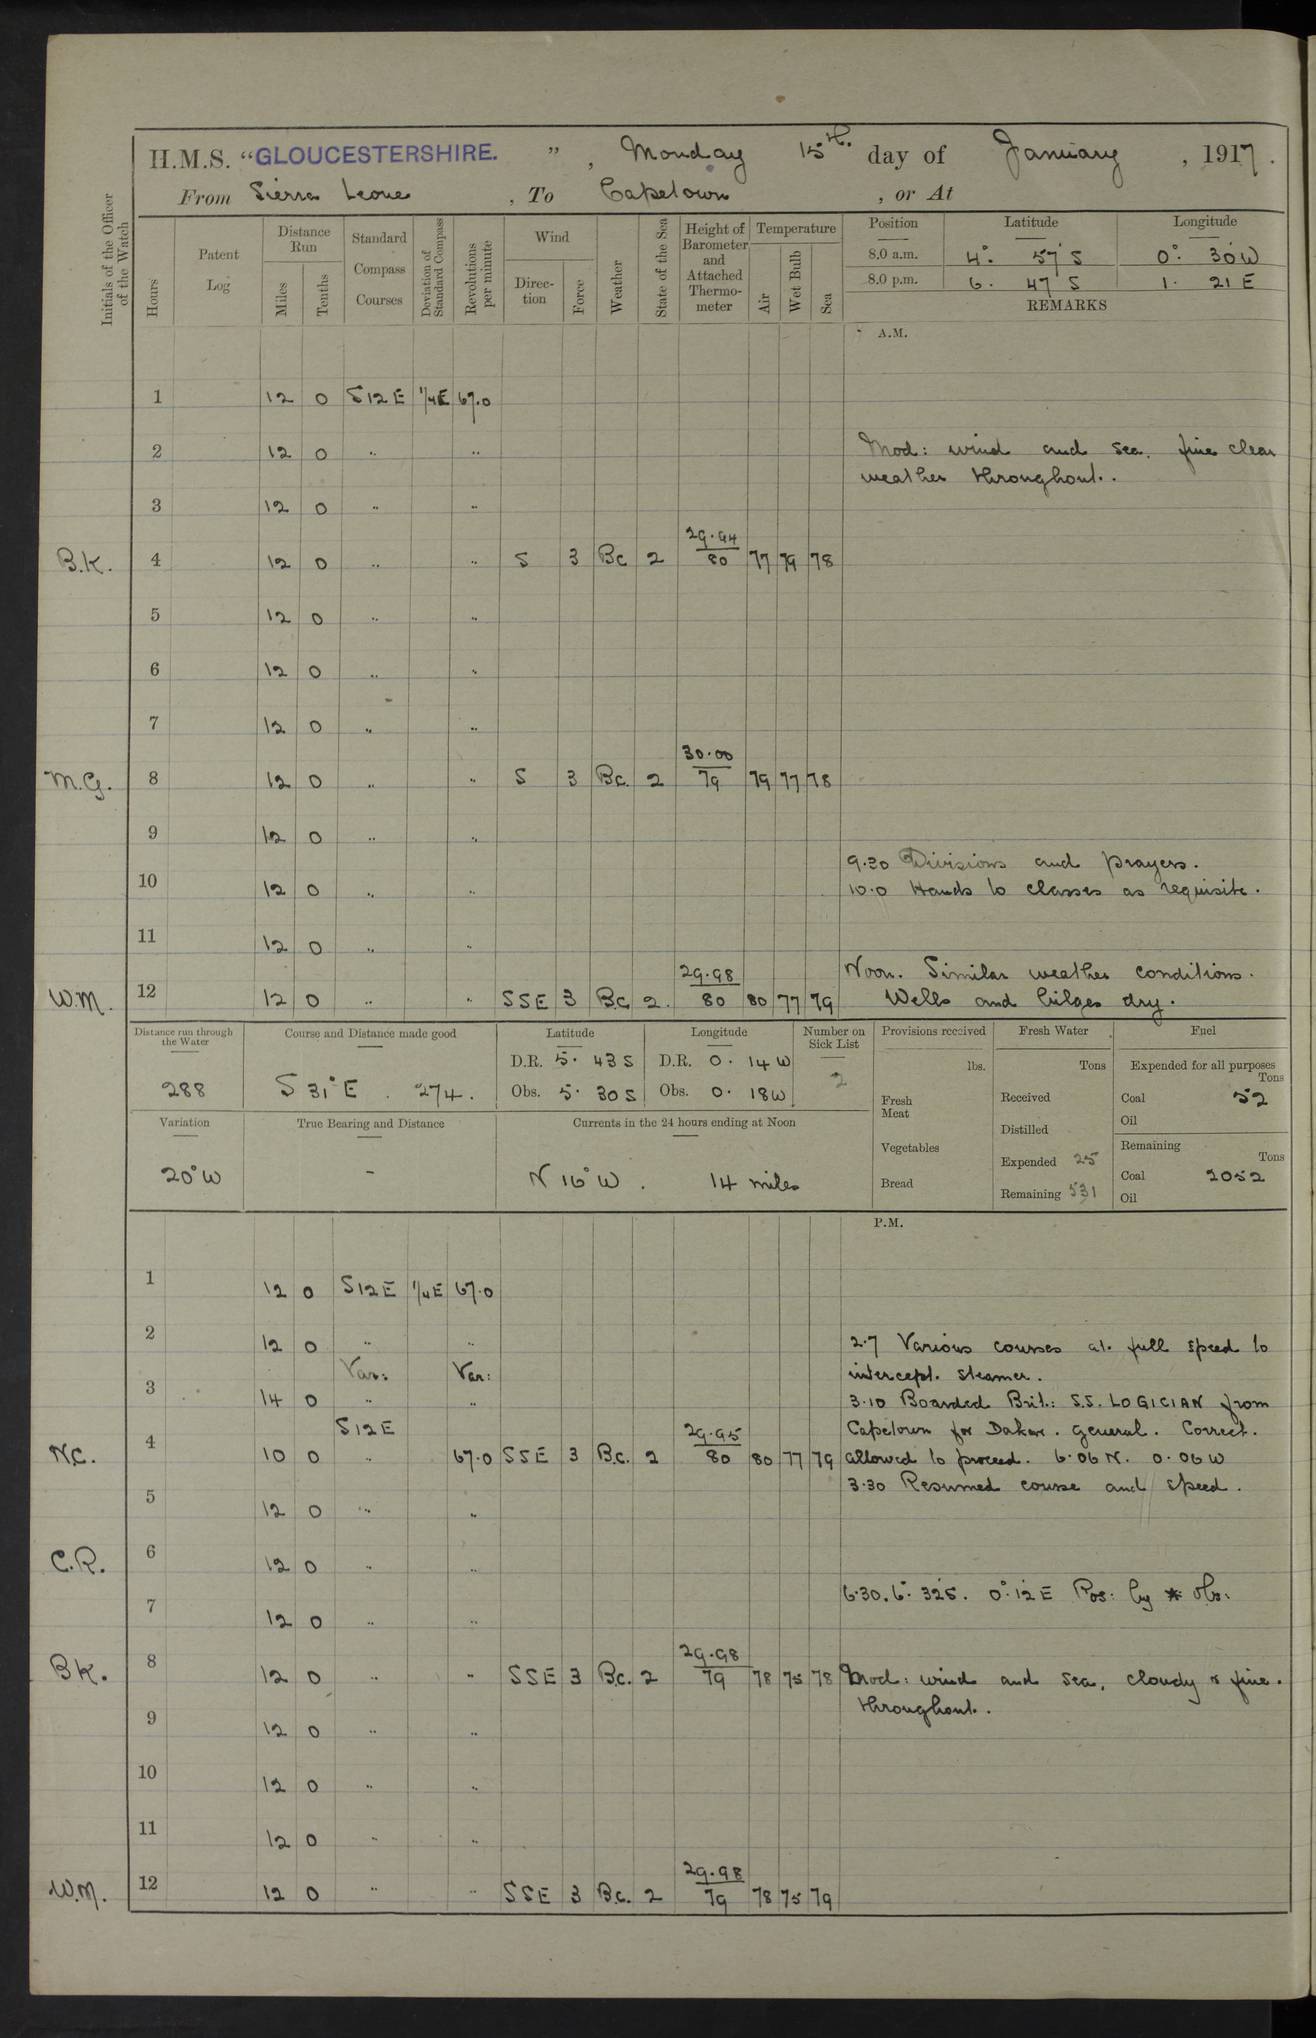 H.M.S. "GLOUCESTERSHIRE." , Monday 15th. day of January , 1917.
From Sierra Leone , To Capetown , or At
Initials of the Officer of the Watch
Hours
Patent Log
Distance Run
Miles
Tenths
Standard Compass Courses
Deviation of Standard Compass
Revolutions per minute
Wind
Direction
Force
Weather
State of the Sea
Height of Barometer and Attached Thermometer
Temperature
Air
Wet Bulb
Sea
Position Latitude Longitude
8.0 a.m. 4° 57' S 0° 30' W
8.0 p.m. 6. 47' S 1. 21 E
REMARKS
A.M.
1 12 0 S12E 1/4E 67.0
2 12 0 " " Mod: wind and sea. fine clear
weather throughout.
3 12 0 " "
B.K. 4 12 0 " " S 3 Bc 2 29.94/80 77 79 78
5 12 0 " "
6 12 0 " "
7 12 0 " "
M.G. 8 12 0 " " S 3 Bc. 2 30.00/79 79 77 78
9 12 0 " "
9.30 Divisions and prayers.
10 12 0 " " 10.0 Hands to classes as requisite.
11 12 0 " "
Noon. Similar weather conditions.
W.M. 12 12 0 " " SSE 3 B.C 2. 29.98/80 80 77 79 Wells and bilges dry.
Distance run through the Water
288
Course and Distance made good
S 31° E . 274.
Latitude
D.R. 5. 43 S
Obs. 5. 30 S
Longitude
D.R. 0. 14 W
Obs. 0. 18 W
Number on Sick List
2
Provisions received
lbs.
Fresh Meat
Vegetables
Bread
Fresh Water
Tons
Received
Distilled
Expended 25
Remaining 531
Fuel
Expended for all purposes
Tons
Coal 52
Oil
Remaining
Tons
Coal 2052
Oil
Variation
20° W
True Bearing and Distance
-
Currents in the 24 hours ending at Noon
N 16° W . 14 miles
P.M.
1 12 0 S12E 1/4E 67.0
2 12 0 " " 2.7 Various courses at full speed to
Var: Var: intercept steamer.
3 14 0 " " 3.10 Boarded Brit: S.S. LOGICIAN from
S12E Capetown for Dakar. general. Correct.
N.C. 4 10 0 " 67.0 SSE 3 B.C. 2 29.95/80 80 77 79 allowed to proceed. 6.06 N. 0.06 W
3.30 Resumed course and speed.
5 12 0 " "
C.R. 6 12 0 " "
6.30. 6° 32' S. 0° 12' E Pos: by * obs:
7 12 0 " "
B.K. 8 12 0 " " SSE 3 B.C. 2 29.98/79 78 75 78 Mod: wind and sea, cloudy & fine.
throughout.
9 12 0 " "
10 12 0 " "
11 12 0 " "
W.M. 12 12 0 " " SSE 3 B.C. 2 29.98/79 78 75 79